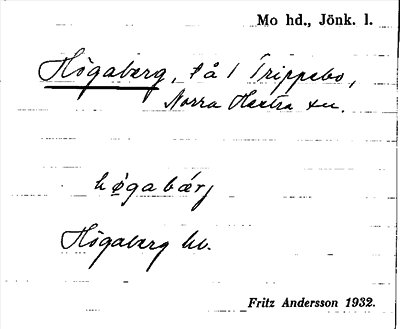 Mo hd., Jönk. l.
Högaberg, på 1 Trippebo,
Norra Hestra sn.
høgabærj
Högaberg hb.
Fritz Andersson 1932.